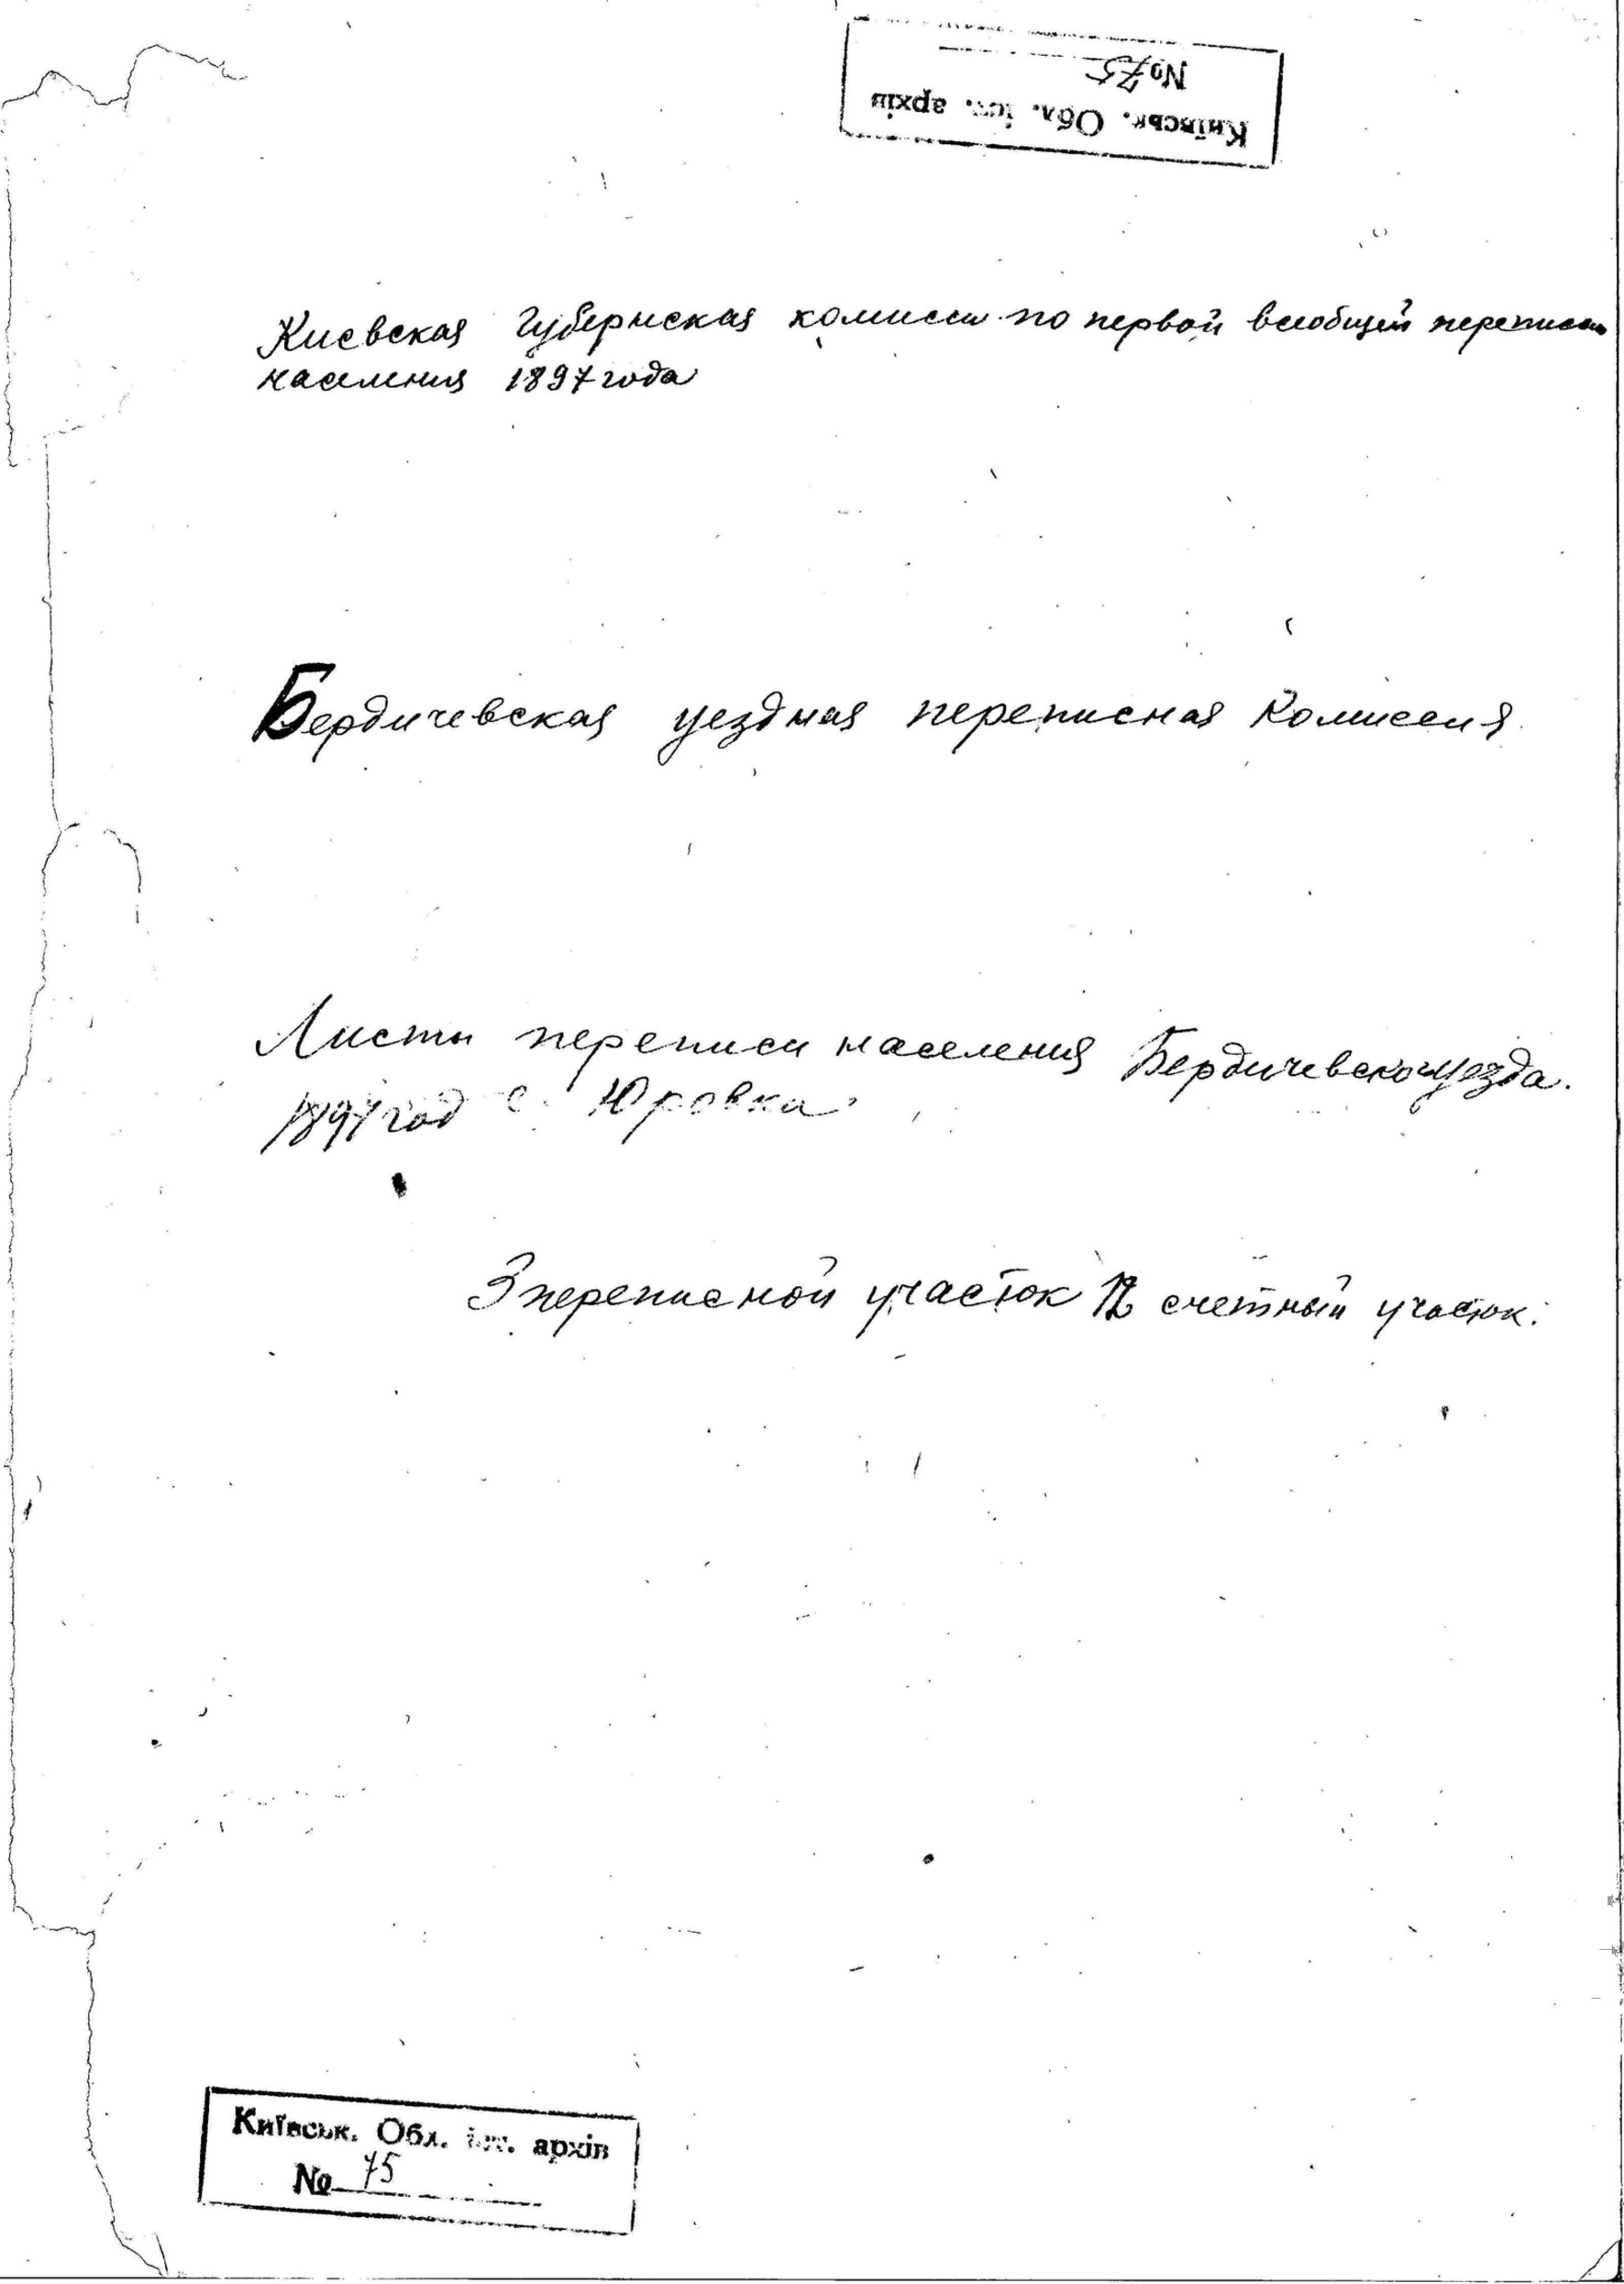 Київськ. Обл. іст. архів
№ 75
Киевская Губернская комисси по первой всеобщей переписи
населения 1897 года
Бердичевская уездная переписная Комиссия
Листы переписи населения Бердичевского уезда.
1897 год с. Юровка
3 переписной участок счетный участок.
Київськ. Обл. іст. архів
№ 75